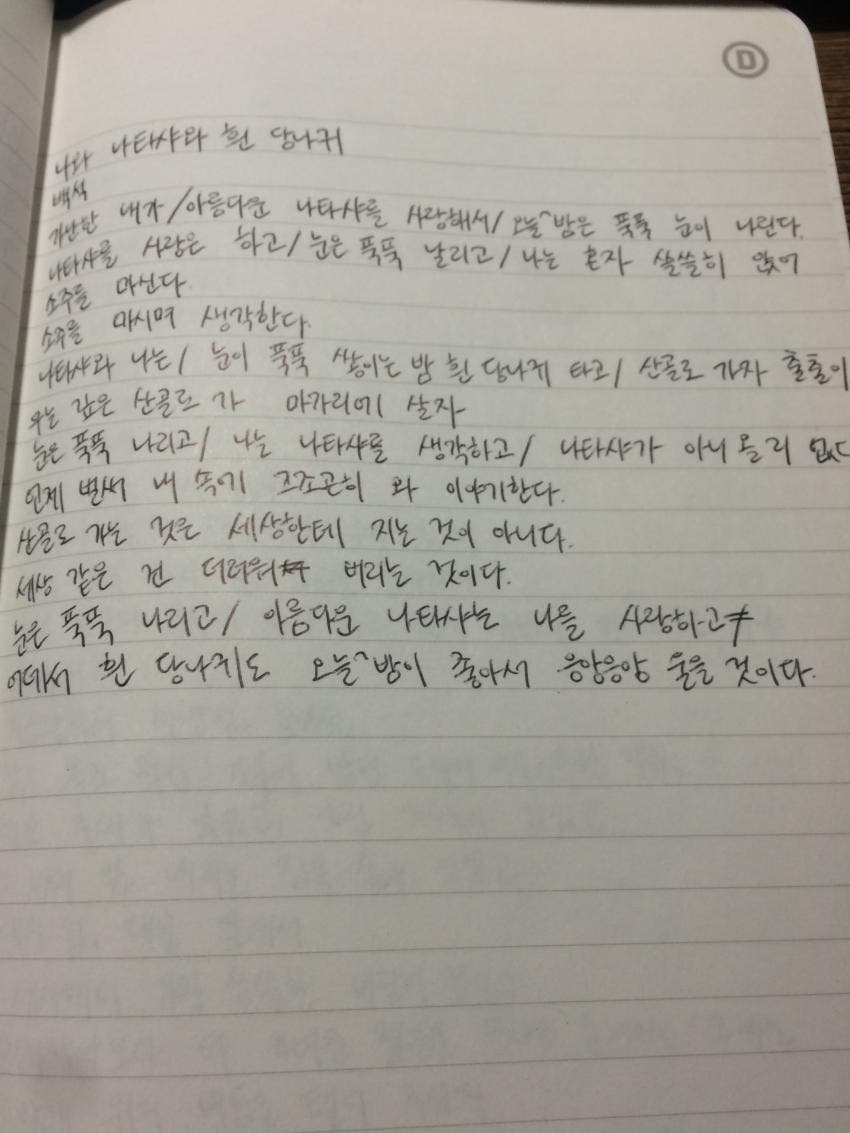 D
나와 나타샤와 흰 당나귀
백석
가난한 내가/아름다운 나타샤를 사랑해서/오늘^밤은 푹푹 눈이 나린다.
나타샤를 사랑은 하고/눈은 푹푹 날리고/나는 혼자 쓸쓸히 앉어
소주를 마신다.
소주를 마시며 생각한다.
나타샤와 나는/ 눈이 푹푹 쌓이는 밤 흰 당나귀 타고/ 산골로 가자 출출이
우는 깊은 산골로 가 마가리에 살자
눈은 푹푹 나리고/ 나는 나타샤를 생각하고/ 나타샤가 아니 올 리 없다
언제 벌써 내 속에 고조곤히 와 이야기한다.
산골로 가는 것은 세상한테 지는 것이 아니다.
세상 같은 건 더러워 버리는 것이다.
눈은 푹푹 나리고/ 아름다운 나타샤는 나를 사랑하고
어데서 흰 당나귀도 오늘^밤이 좋아서 응앙응앙 울을 것이다.